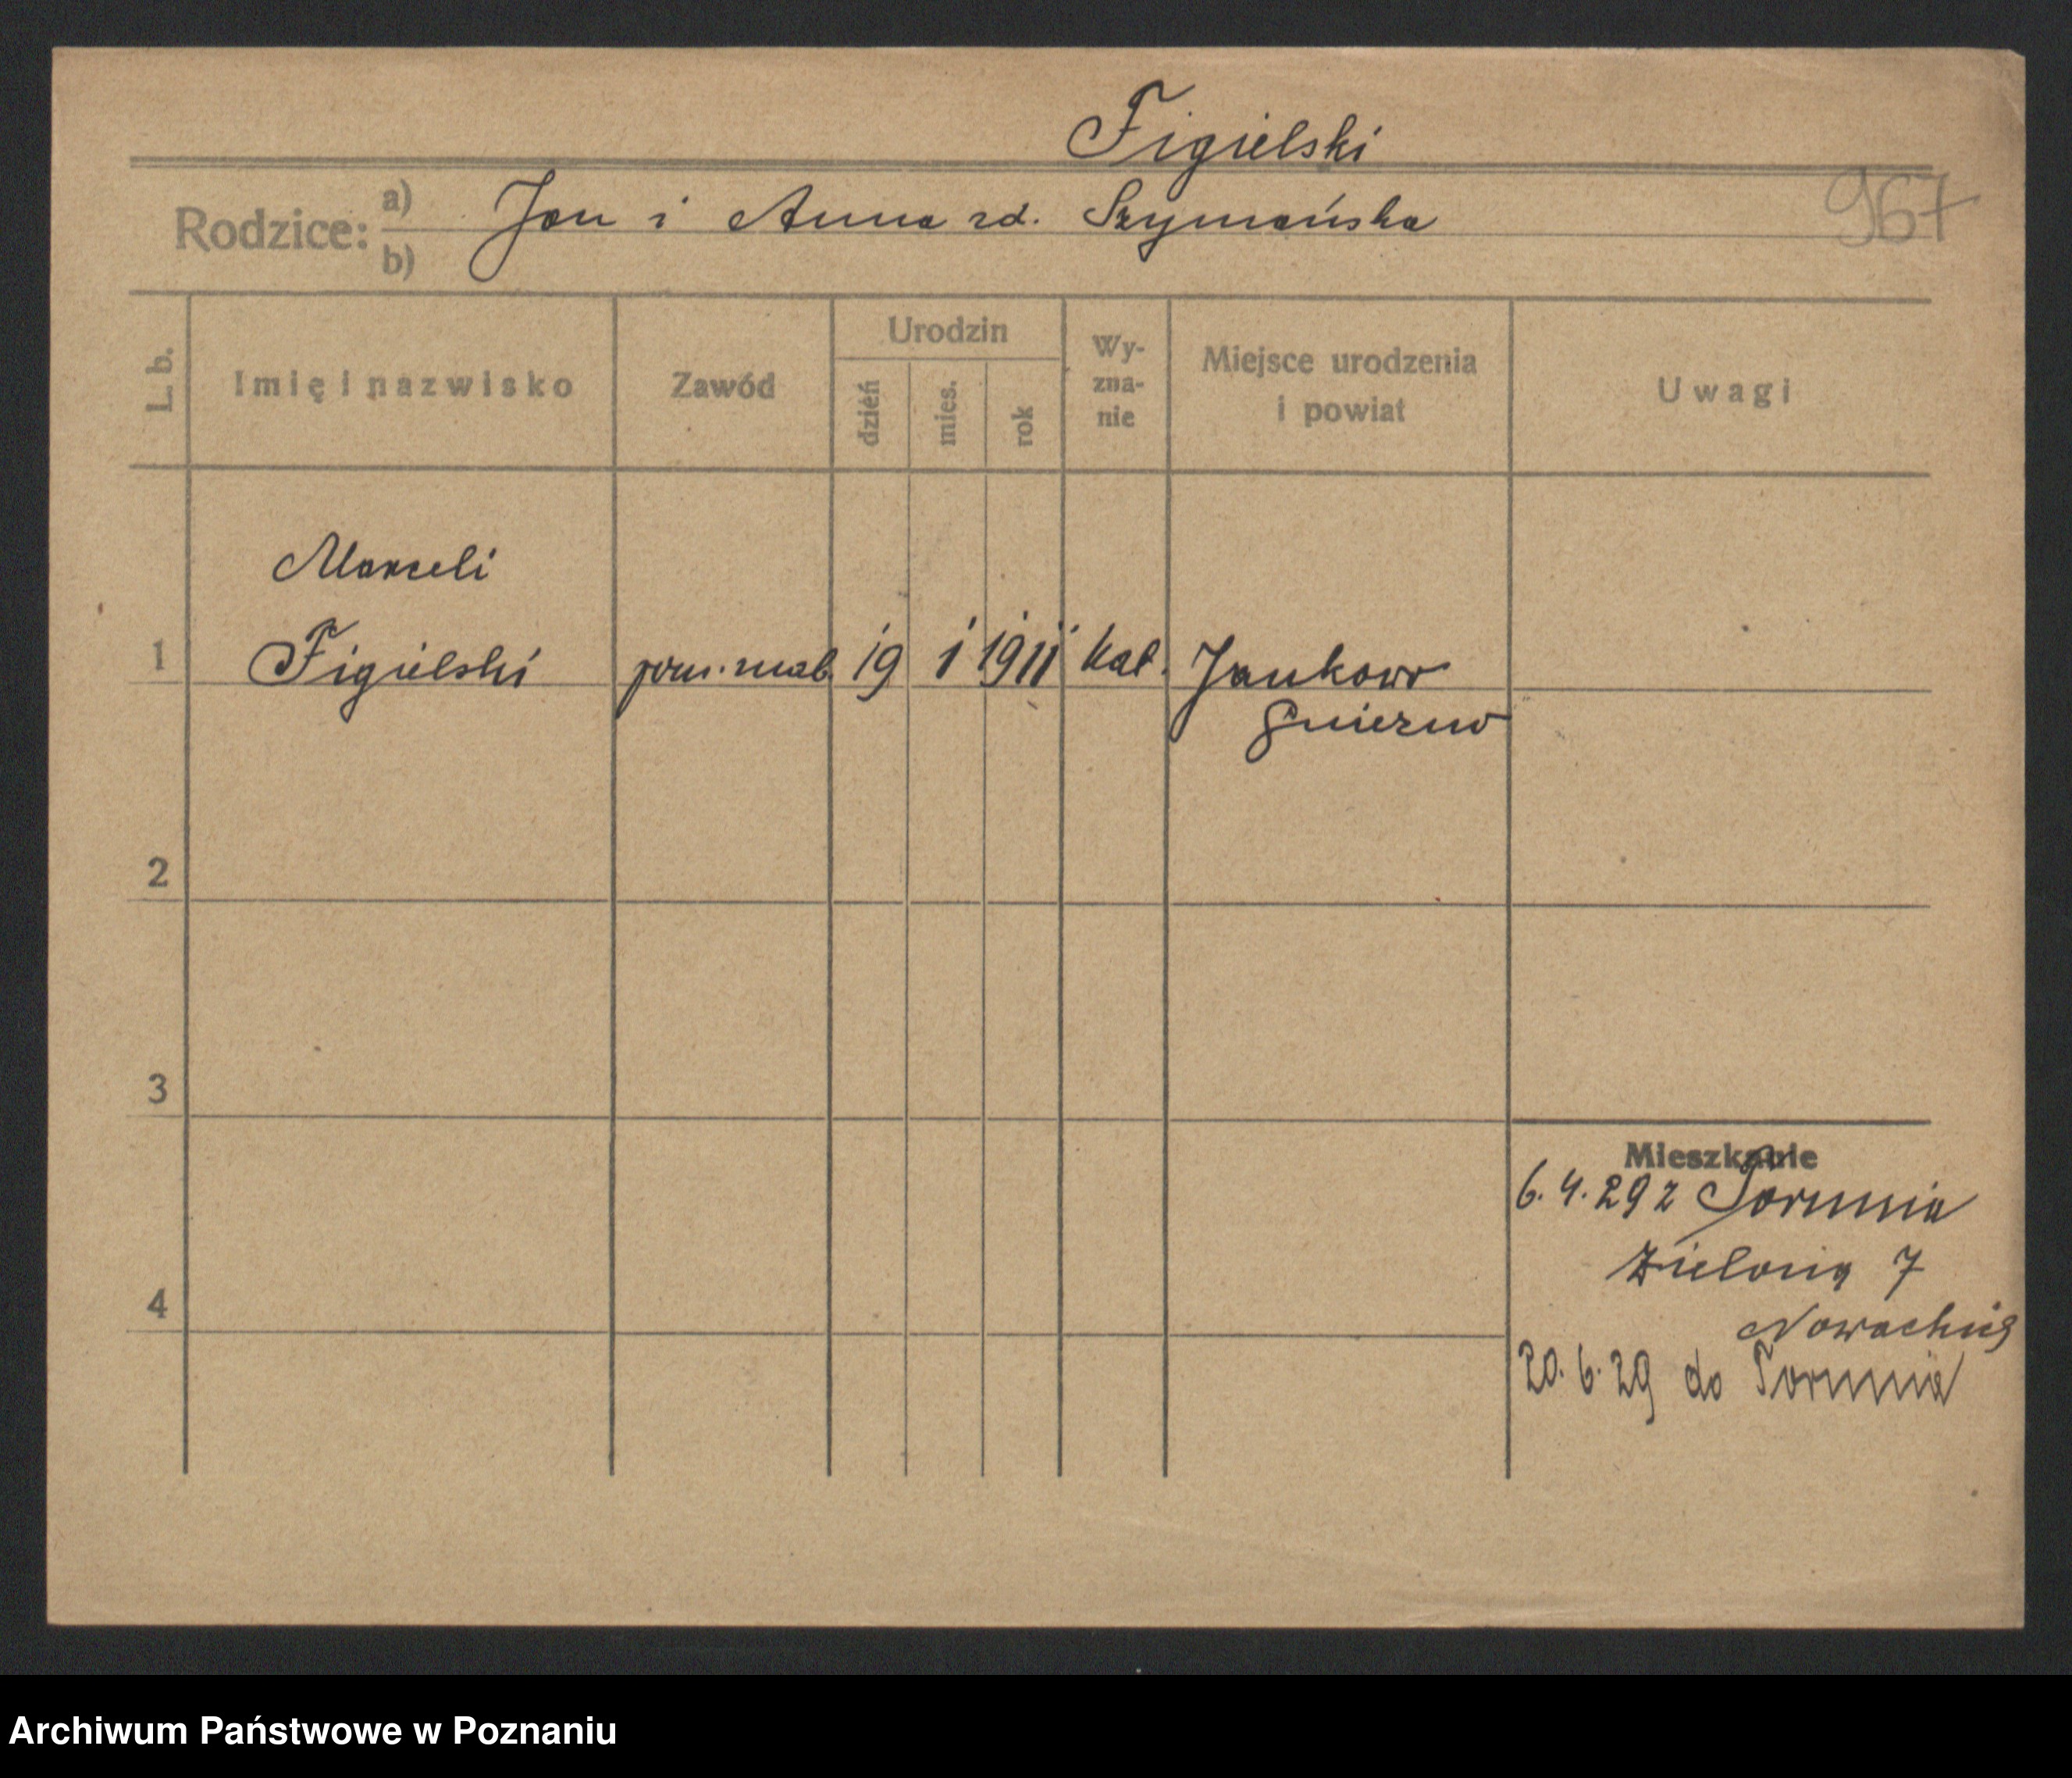 Figielski
967
Rodzice: a) Jan i Anna rd. Szymańska
b)
L. b.
Imię i nazwisko
Zawód
Urodzin
dzień
mies.
rok
Wy-
zna-
nie
Miejsce urodzenia
i powiat
Uwagi
Marceli
1 Figielski pom. mal. 19 1 1911 kat. Jankowo
Gniezno
2
3
Mieszkanie
6.4.29 z Torunia
7
20.6.29 do Torunia
4
Archiwum Państwowe w Poznaniu